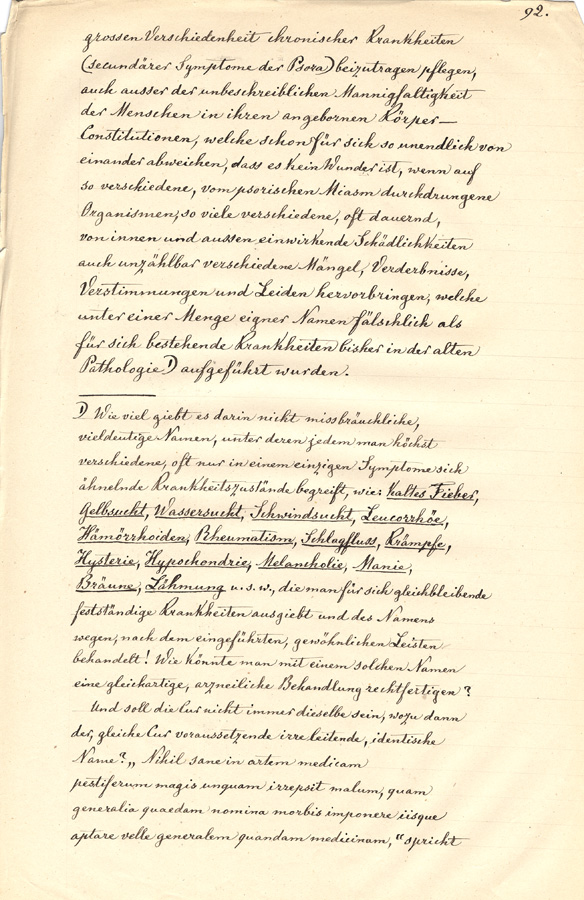 92.
grossen Verschiedenheit chronischer Krankheiten
(secundärer Symptome der Psora) beizutragen pflegen,
auch ausser der unbeschreiblichen Mannigfaltigkeit
der Menschen in ihren angebornen Körper-
Constitutionen, welche schon für sich so unendlich von
einander abweichen, dass es kein Wunder ist, wenn auf
so verschiedene, vom psorischen Miasm durchdrungene
Organismen, so viele verschiedene, oft dauernd,
von innen und aussen einwirkende Schädlichkeiten
auch unzählbar verschiedene Mängel, Verderbnisse,
Verstimmungen und Leiden hervorbringen, welche
unter einer Menge eigner Namen fälschlich als
für sich bestehende Krankheiten bisher in der alten
Pathologie 1) aufgeführt wurden.
1) Wie viel giebt es darin nicht missbräuchliche,
vieldeutige Namen, unter deren jedem man höchst
verschiedene, oft nur in einem einzigen Symptome sich
ähnelnde Krankheitszustände begreift, wie: kaltes Fieber,
Gelbsucht, Wassersucht, Schwindsucht, Leucorrhöe,
Hämörrhoiden, Rheumatism, Schlagfluss, Krämpfe,
Hysterie, Hypochondrie, Melancholie, Manie,
Bräune, Lähmung u.s.w., die man für sich gleichbleibende
festständige Krankheiten ausgiebt und des Namens
wegen, nach dem eingeführten, gewöhnlichen Leisten
behandelt! Wie könnte man mit einem solchen Namen
eine gleichartige, arzneiliche Behandlung rechtfertigen?
Und soll die Cur nicht immer dieselbe sein, wozu dann
der, gleiche Cur voraussetzende irre leitende, identische
Name? „Nihil sane in artem medicam
pestiferum magis unquam irrepsit malum, quam
generalia quaedam nomina morbis imponere iisque
aptare velle generalem quandam medicinam,“ spricht